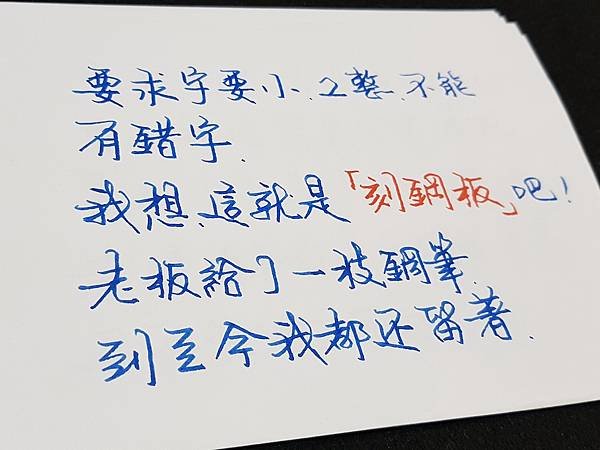 要求字要小、工整、不能
有錯字.
我想、這就是「刻鋼板」吧!
老板給了一枝鋼筆.
到至今我都还留著.